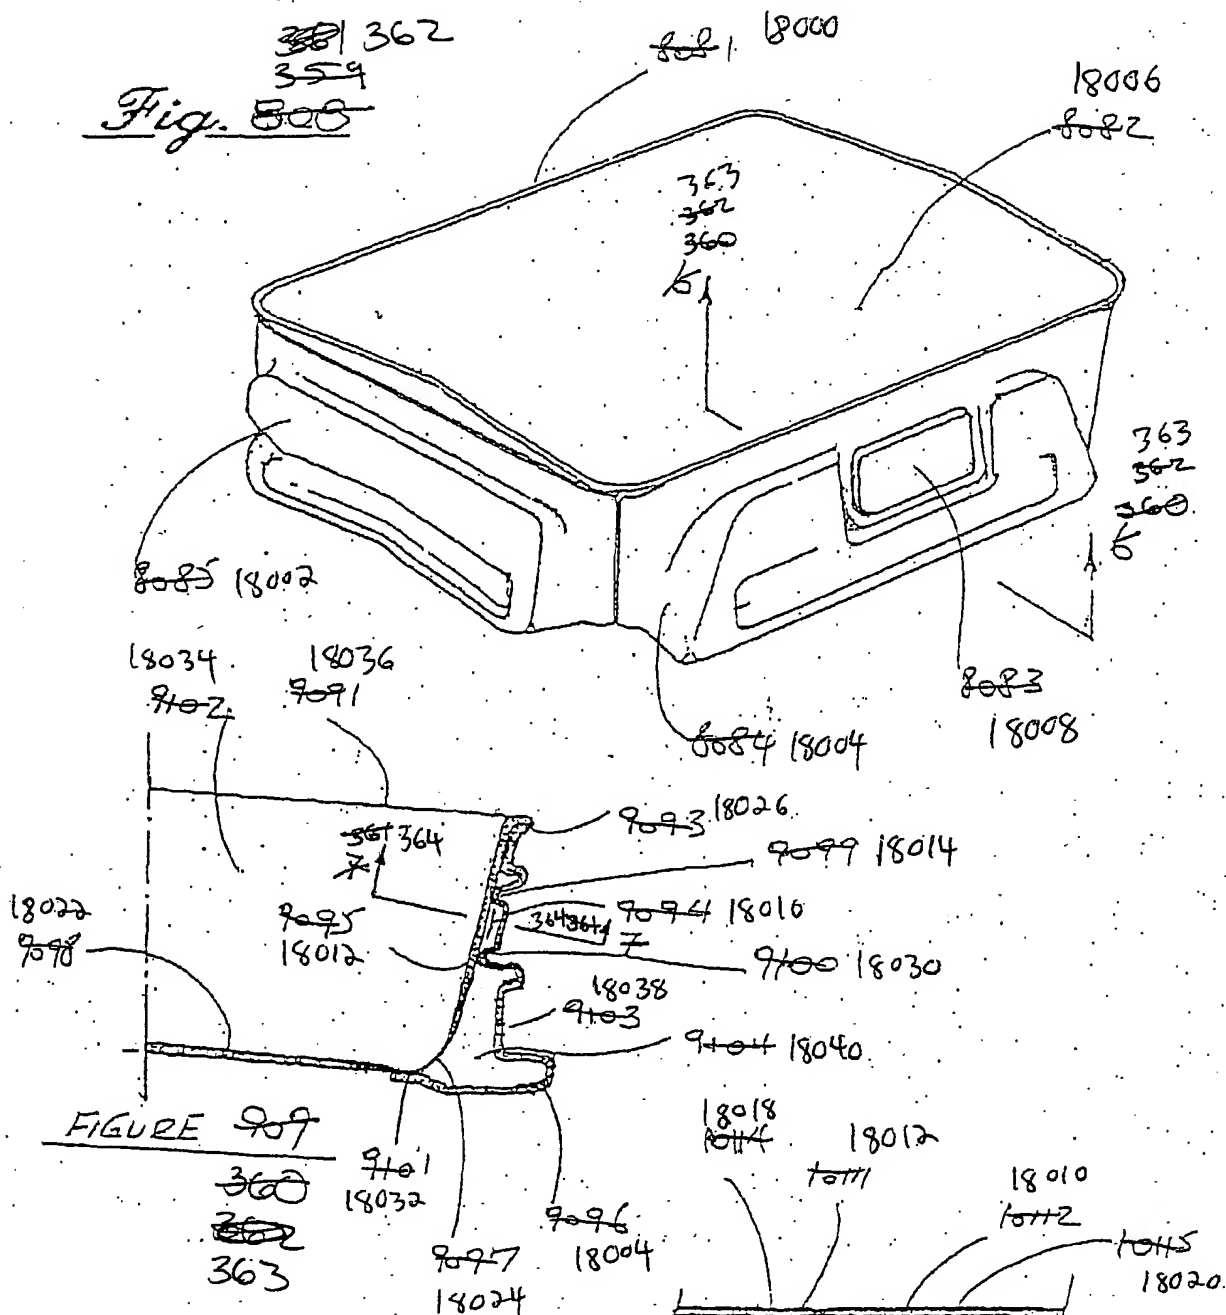 381 362
359
Fig. 808
8081 18000
18006
8082
363
362
360
6
363
362
360
6
8085 18002
8083
18008
8084 18004
18034
9102
18036
9091
9093 18026
361 364
7
9099 18014
9094 18010
364 361
7
18022
9098
9095
18012
9100 18030
18038
9103
9104 18040
FIGURE 909
360
362
363
9101
18032
9097
18024
9096
18004
18018
10114
18012
10111
18010
10112
10115
18020